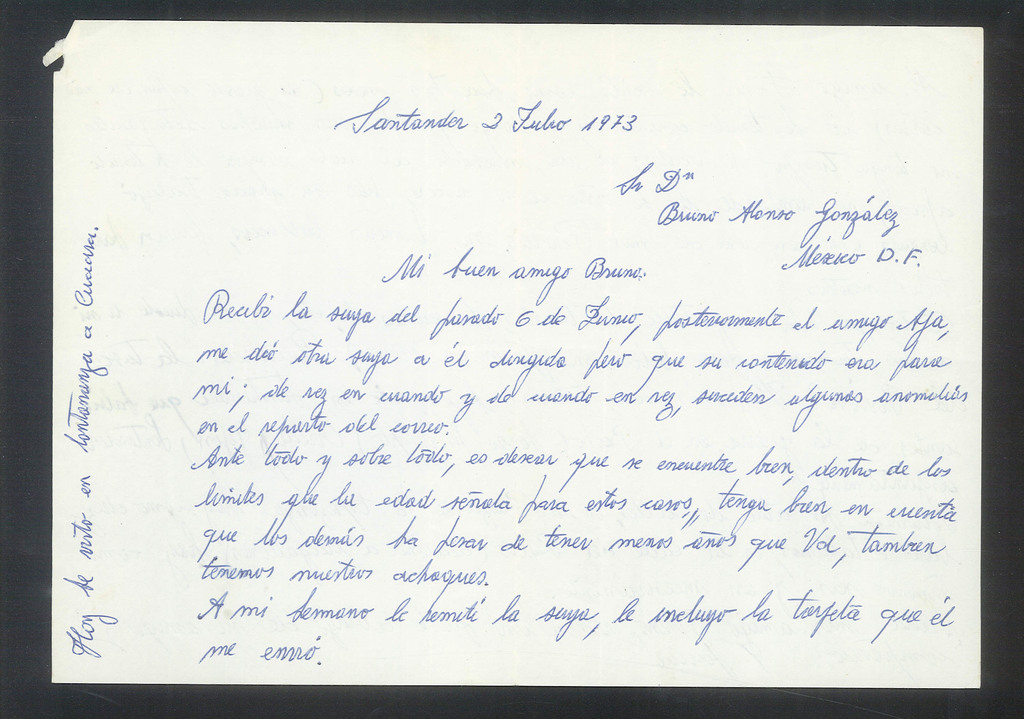 Santander 2 Julio 1973
Sr Dn
Bruno Alonso González
México D.F.
Mi buen amigo Bruno:
Recibí la suya del pasado 6 de Junio, posteriormente el amigo Aja,
me dió otra suya a él dirigida pero que su contenido era para
mi; de vez en cuando y de cuando en vez, suceden algunas anomalías
en el reparto del correo.
Ante todo y sobre todo, es desear que se encuentre bien, dentro de los
limites que la edad señala para estos casos, tenga bien en cuenta
que los demás ha pesar de tener menos años que Vd, tambien
tenemos nuestros achaques.
A mi hermano le remití la suya, le incluyo la tarjeta que él
me envió.
Hoy he visto en lontananza a